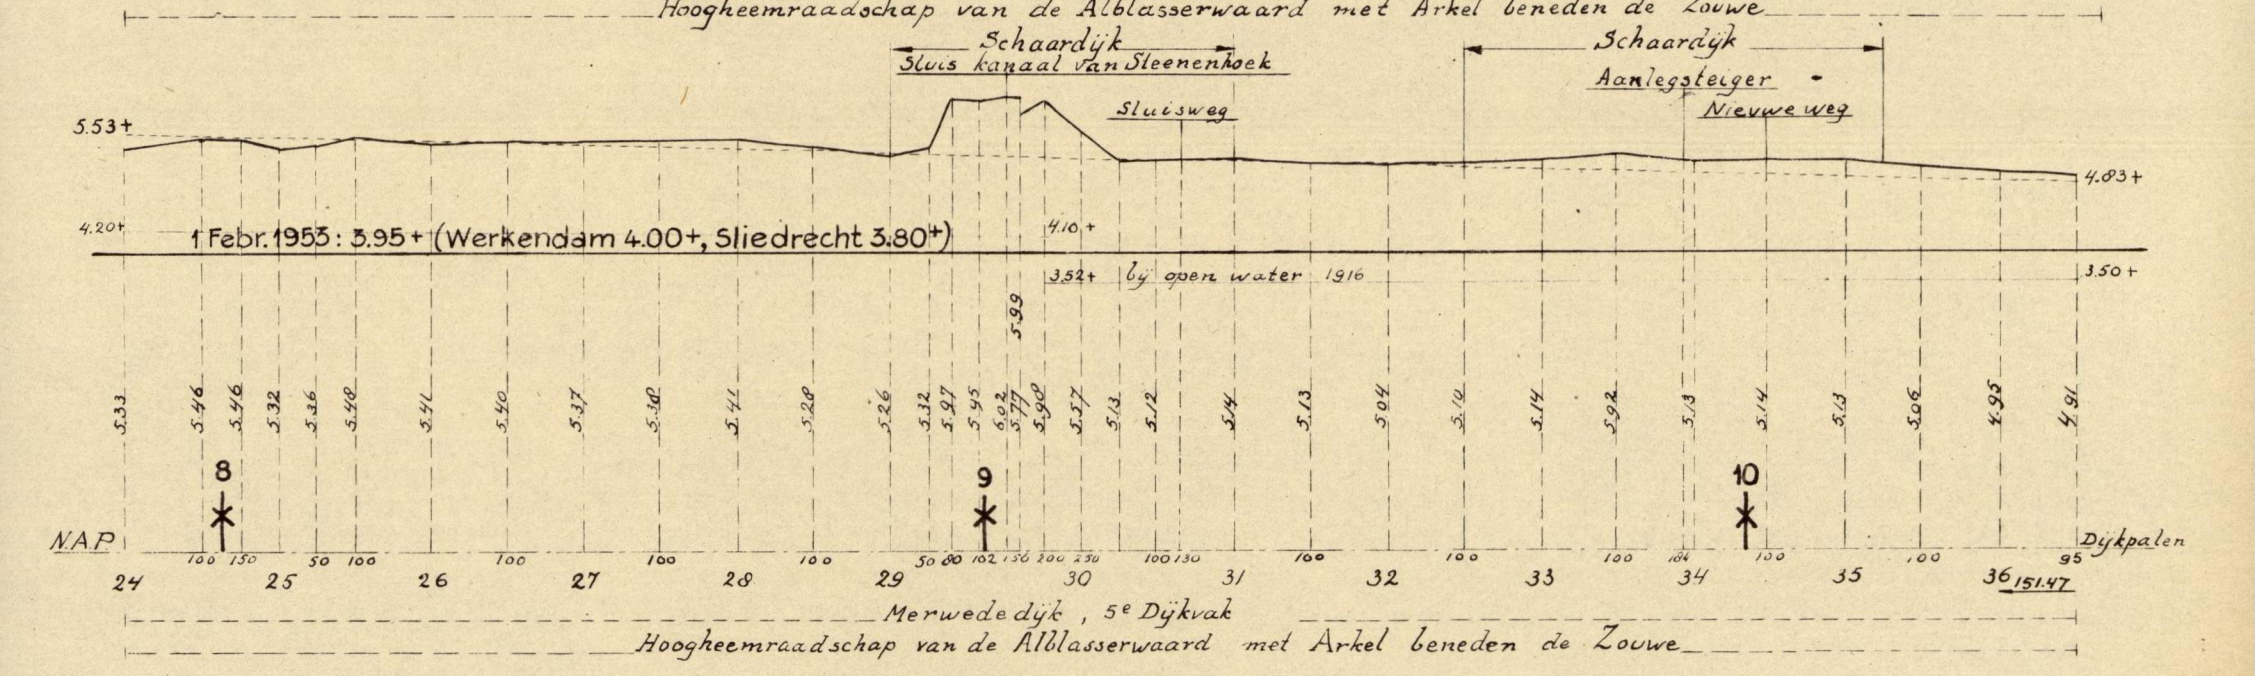 Hoogheemraadschap van de Alblasserwaard met Arkel beneden de Zouwe
Schaardijk Schaardijk
Sluis kanaal van Steenenhoek
Aanlegsteiger
Sluisweg Nieuwe weg
5.53+
4.83+
4.20+ 4.10+
1 Febr. 1953: 3.95+ (Werkendam 4.00+, Sliedrecht 3.80+)
3.52+ bij open water 1916 3.50+
5.99
5.33 5.46 5.46 5.32 5.36 5.48 5.41 5.40 5.37 5.38 5.41 5.28 5.26 5.32 5.97 5.95 6.02 5.77 5.98 5.57 5.13 5.12 5.14 5.13 5.04 5.10 5.14 5.92 5.13 5.14 5.13 5.06 4.95 4.91
8 9 10
N.A.P. Dijkpalen
100 150 50 100 100 100 100 50 80 102 156 200 250 100 130 100 100 100 184 100 100 95
24 25 26 27 28 29 30 31 32 33 34 35 36 151.47
Merwededijk, 5e Dijkvak
Hoogheemraadschap van de Alblasserwaard met Arkel beneden de Zouwe